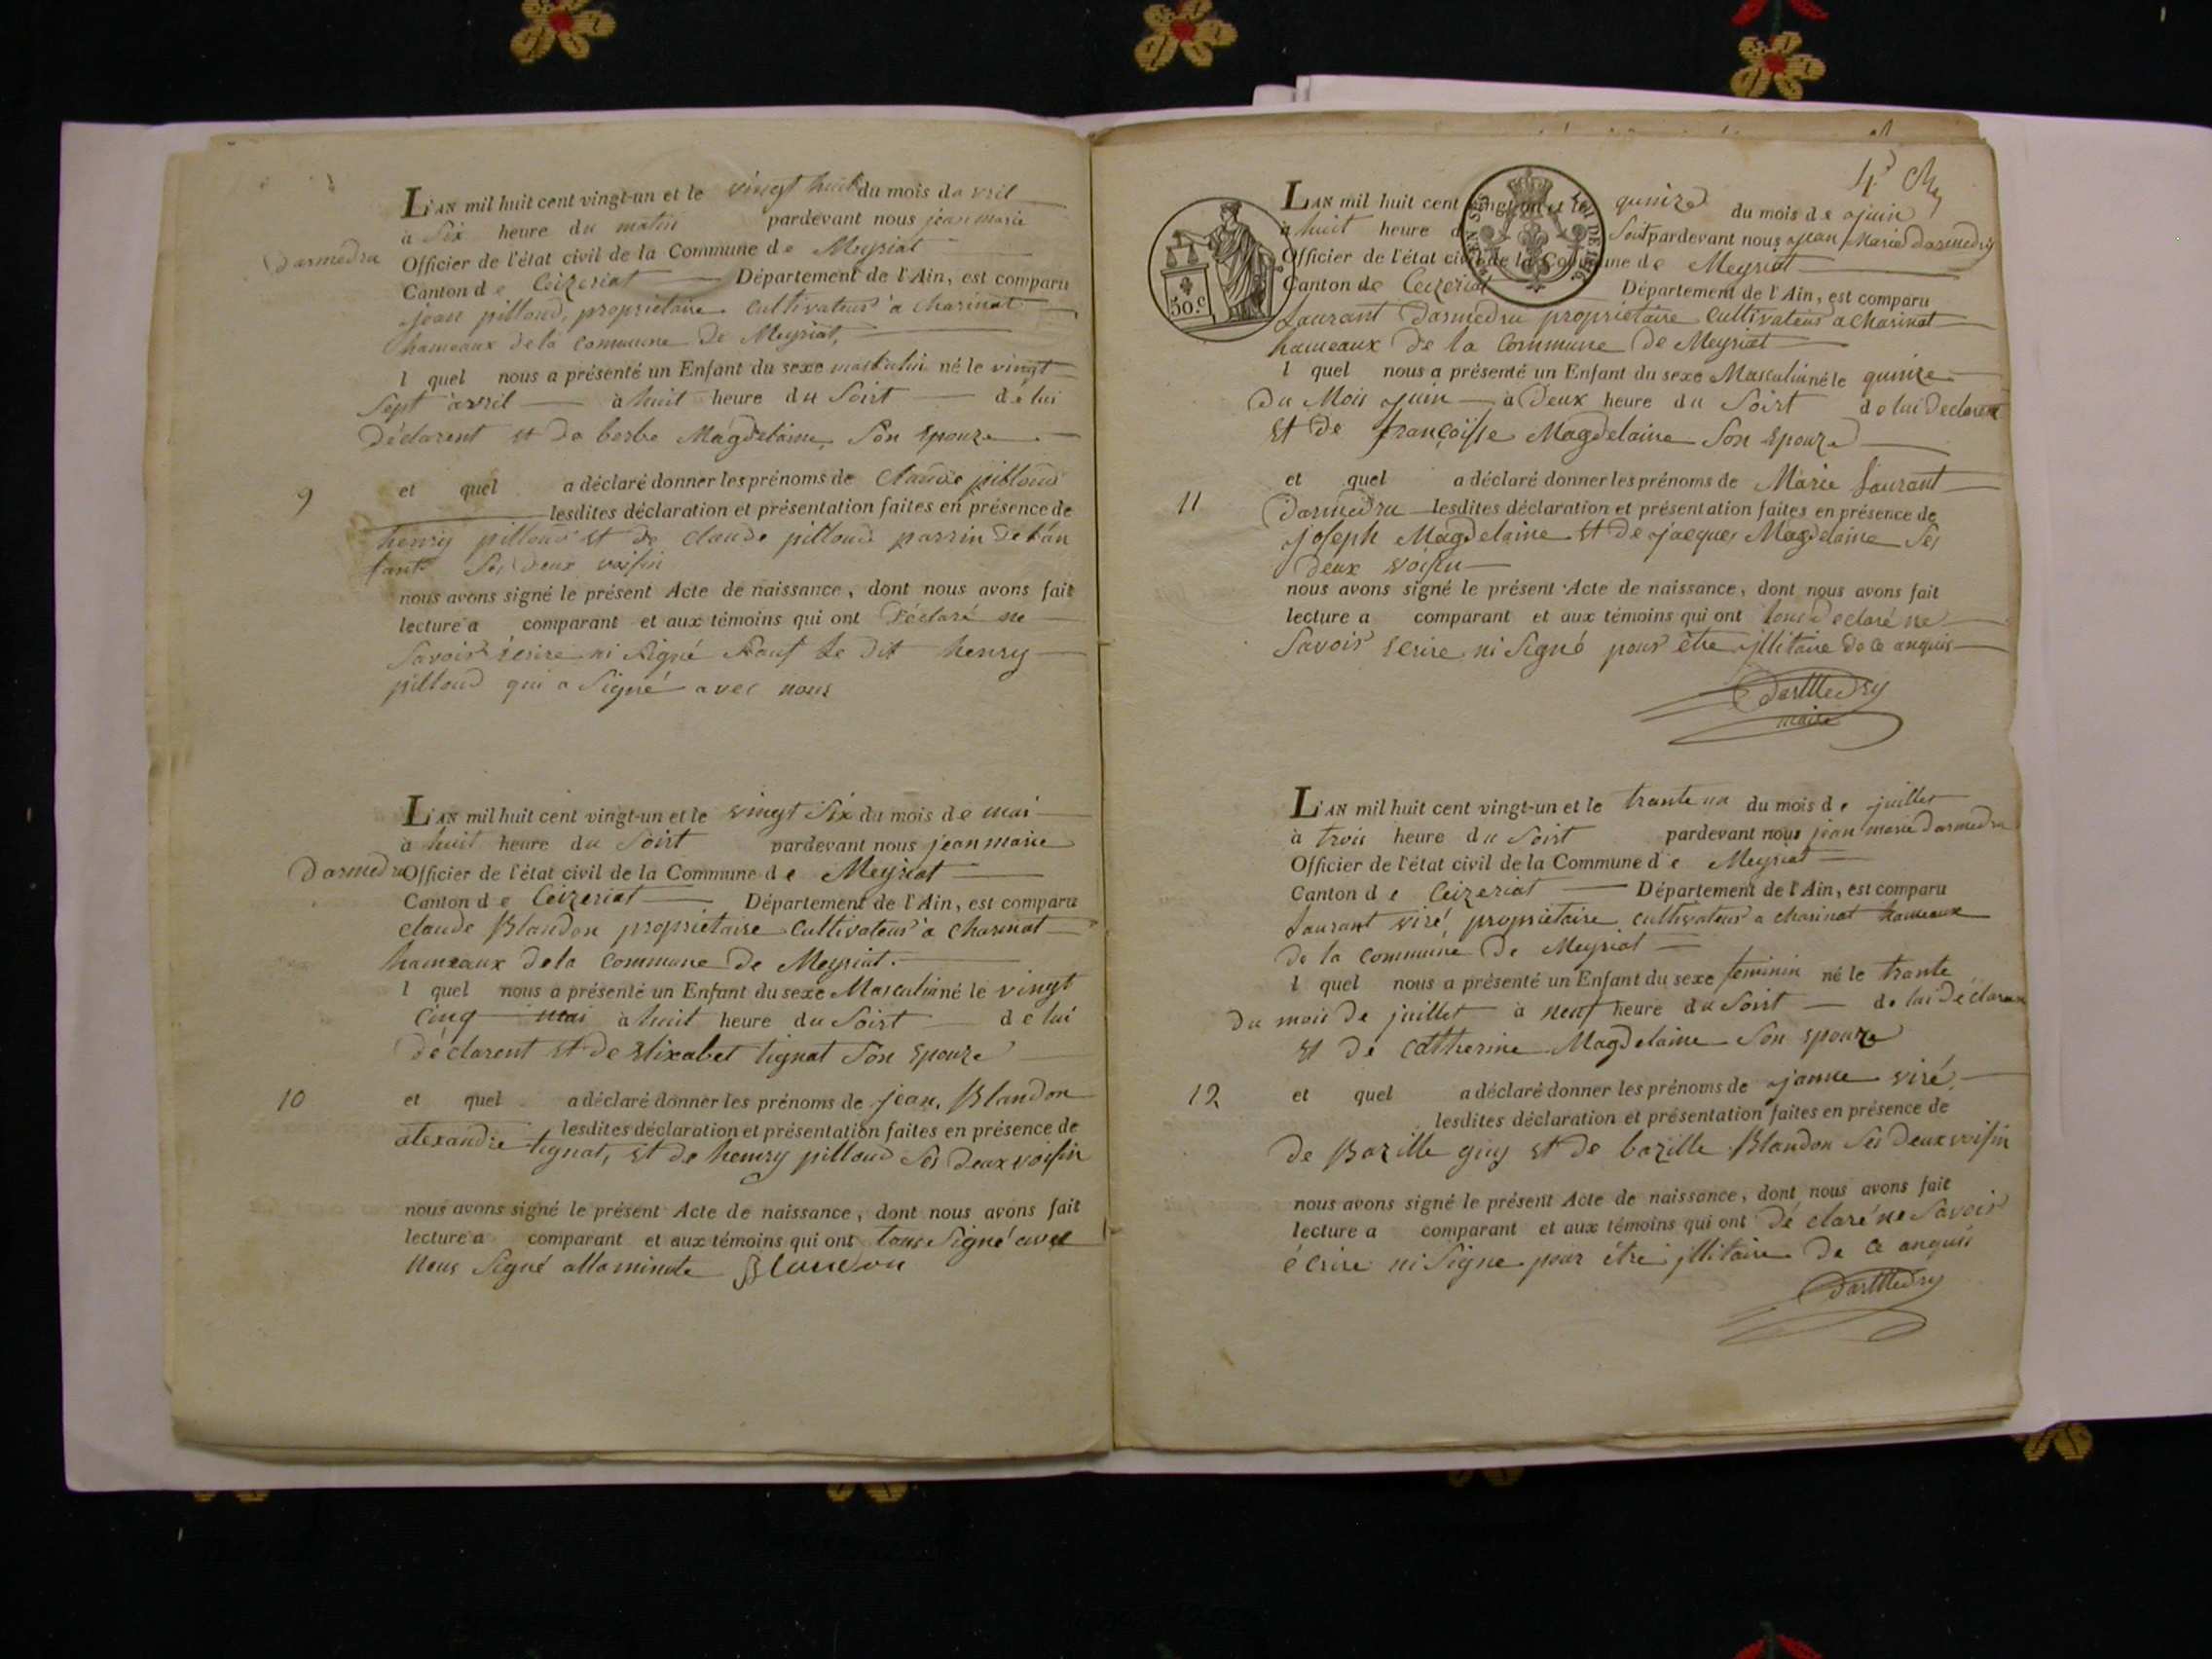 L'AN mil huit cent vingt-un et le vingt huit du mois d'avril
à six heure du matin pardevant nous jean marie
Darmedru Officier de l'état civil de la Commune de Meyriat
Canton de Ceizeriat Département de l'Ain, est comparu
jean pilloud, proprietaire cultivateur a charinat
hameaux de la commune de Meyriat,
l quel nous a présenté un Enfant du sexe masculin né le vingt
sept avril à huit heure du soirt de lui
déclarent et de Magdelaine son epouze
9 et quel a déclaré donner les prénoms de claude pilloud
lesdites déclaration et présentation faites en présence de
henry pilloud et de claude pilloud parrin de l'an
fant ses deux voisin
nous avons signé le présent Acte de naissance, dont nous avons fait
lecture a comparant et aux témoins qui ont déclaré ne
savoir écrire ni signé sauf le dit henry
pilloud qui a signé avec nous
L'AN mil huit cent vingt-un et le vingt six du mois de mai
à huit heure du soirt pardevant nous jean marie
Darmedru Officier de l'état civil de la Commune de Meyriat
Canton de Ceizeriat Département de l'Ain, est comparu
claude Blandon proprietaire cultivateur a charinat
hameaux de la commune de Meyriat.
l quel nous a présenté un Enfant du sexe Masculin né le vingt
cinq mai à huit heure du soirt de lui
déclarent et de Elixabet tignat son epouze
10 et quel a déclaré donner les prénoms de jean, Blandon
lesdites déclaration et présentation faites en présence de
alexandre tignat, et de henry pilloud ses deux voisin
nous avons signé le présent Acte de naissance, dont nous avons fait
lecture a comparant et aux témoins qui ont tous signé avec
nous signé alla minute Blandon
4
L'AN mil huit cent vingt-un et le quinze du mois de juin
à huit heure du soirt pardevant nous jean Marie Darmedru
Officier de l'état civil de la Commune de Meyriat
Canton de Ceizeriat Département de l'Ain, est comparu
50.c
Laurant Darmedru proprietaire cultivateur a charinat
hameaux de la commune de Meyriat
l quel nous a présenté un Enfant du sexe Masculin né le quinze
du Mois juin à Deux heure du soirt de lui declarent
et de françoisse Magdelaine son epouze
11 et quel a déclaré donner les prénoms de Marie Laurant
Darmedru lesdites déclaration et présentation faites en présence de
joseph Magdelaine et de jacques Magdelaine ses
deux voisin
nous avons signé le présent Acte de naissance, dont nous avons fait
lecture a comparant et aux témoins qui ont tous declaré ne
savoir ecrire ni signé pour être illitaire de ce anquis
DarMedru
maire
L'AN mil huit cent vingt-un et le trante un du mois de juillet
à trois heure du soirt pardevant nous jean marie Darmedru
Officier de l'état civil de la Commune de Meyriat
Canton de Ceizeriat Département de l'Ain, est comparu
Laurant viré, proprietaire cultivateur a charinat hameaux
de la commune de Meyriat
l quel nous a présenté un Enfant du sexe feminin né le trante
du mois de juillet à neuf heure du soirt de lui déclarent
et de catherine Magdelaine son epouze
12 et quel a déclaré donner les prénoms de janne viré
lesdites déclaration et présentation faites en présence de
de Bazille guy et de bazille Blandon ses deux voisin
nous avons signé le présent Acte de naissance, dont nous avons fait
lecture a comparant et aux témoins qui ont déclaré ne savoir
écrire ni signe pour être illitaire de ce anquis
DarMedru